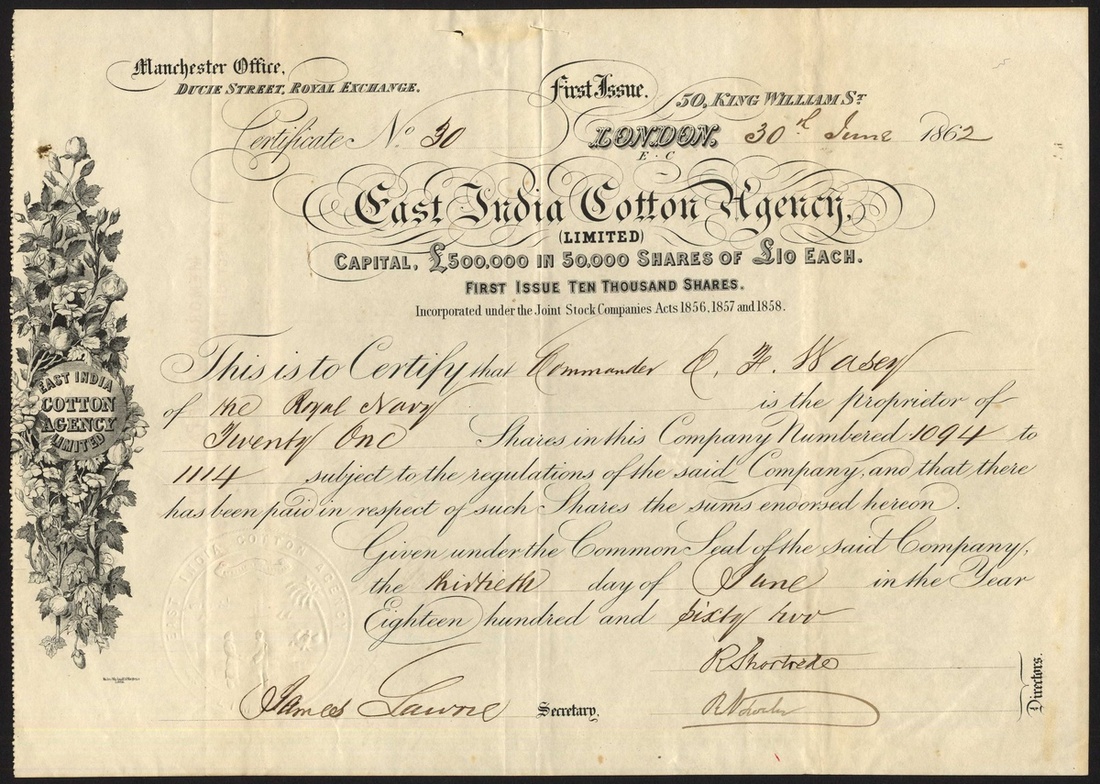 Manchester Office,
Ducie Street, Royal Exchange.
First Issue.
50, King William St
Certificate No. 30
London, 30th June 1862
E.C
East India Cotton Agency,
(LIMITED)
Capital, £500.000 in 50.000 Shares of £10 Each.
First Issue Ten Thousand Shares.
Incorporated under the Joint Stock Companies Acts 1856, 1857 and 1858.
This is to Certify that Commander C. F. Wasey
of the Royal Navy is the proprietor of
Twenty One Shares in this Company Numbered 1094 to
1114 subject to the regulations of the said Company, and that there
has been paid in respect of such Shares the sums endorsed hereon.
Given under the Common Seal of the said Company,
the thirtieth day of June in the Year
Eighteen hundred and Sixty two
EAST INDIA
COTTON
AGENCY
LIMITED
EAST INDIA COTTON AGENCY
R Shortrede
James
Secretary,
Directors.